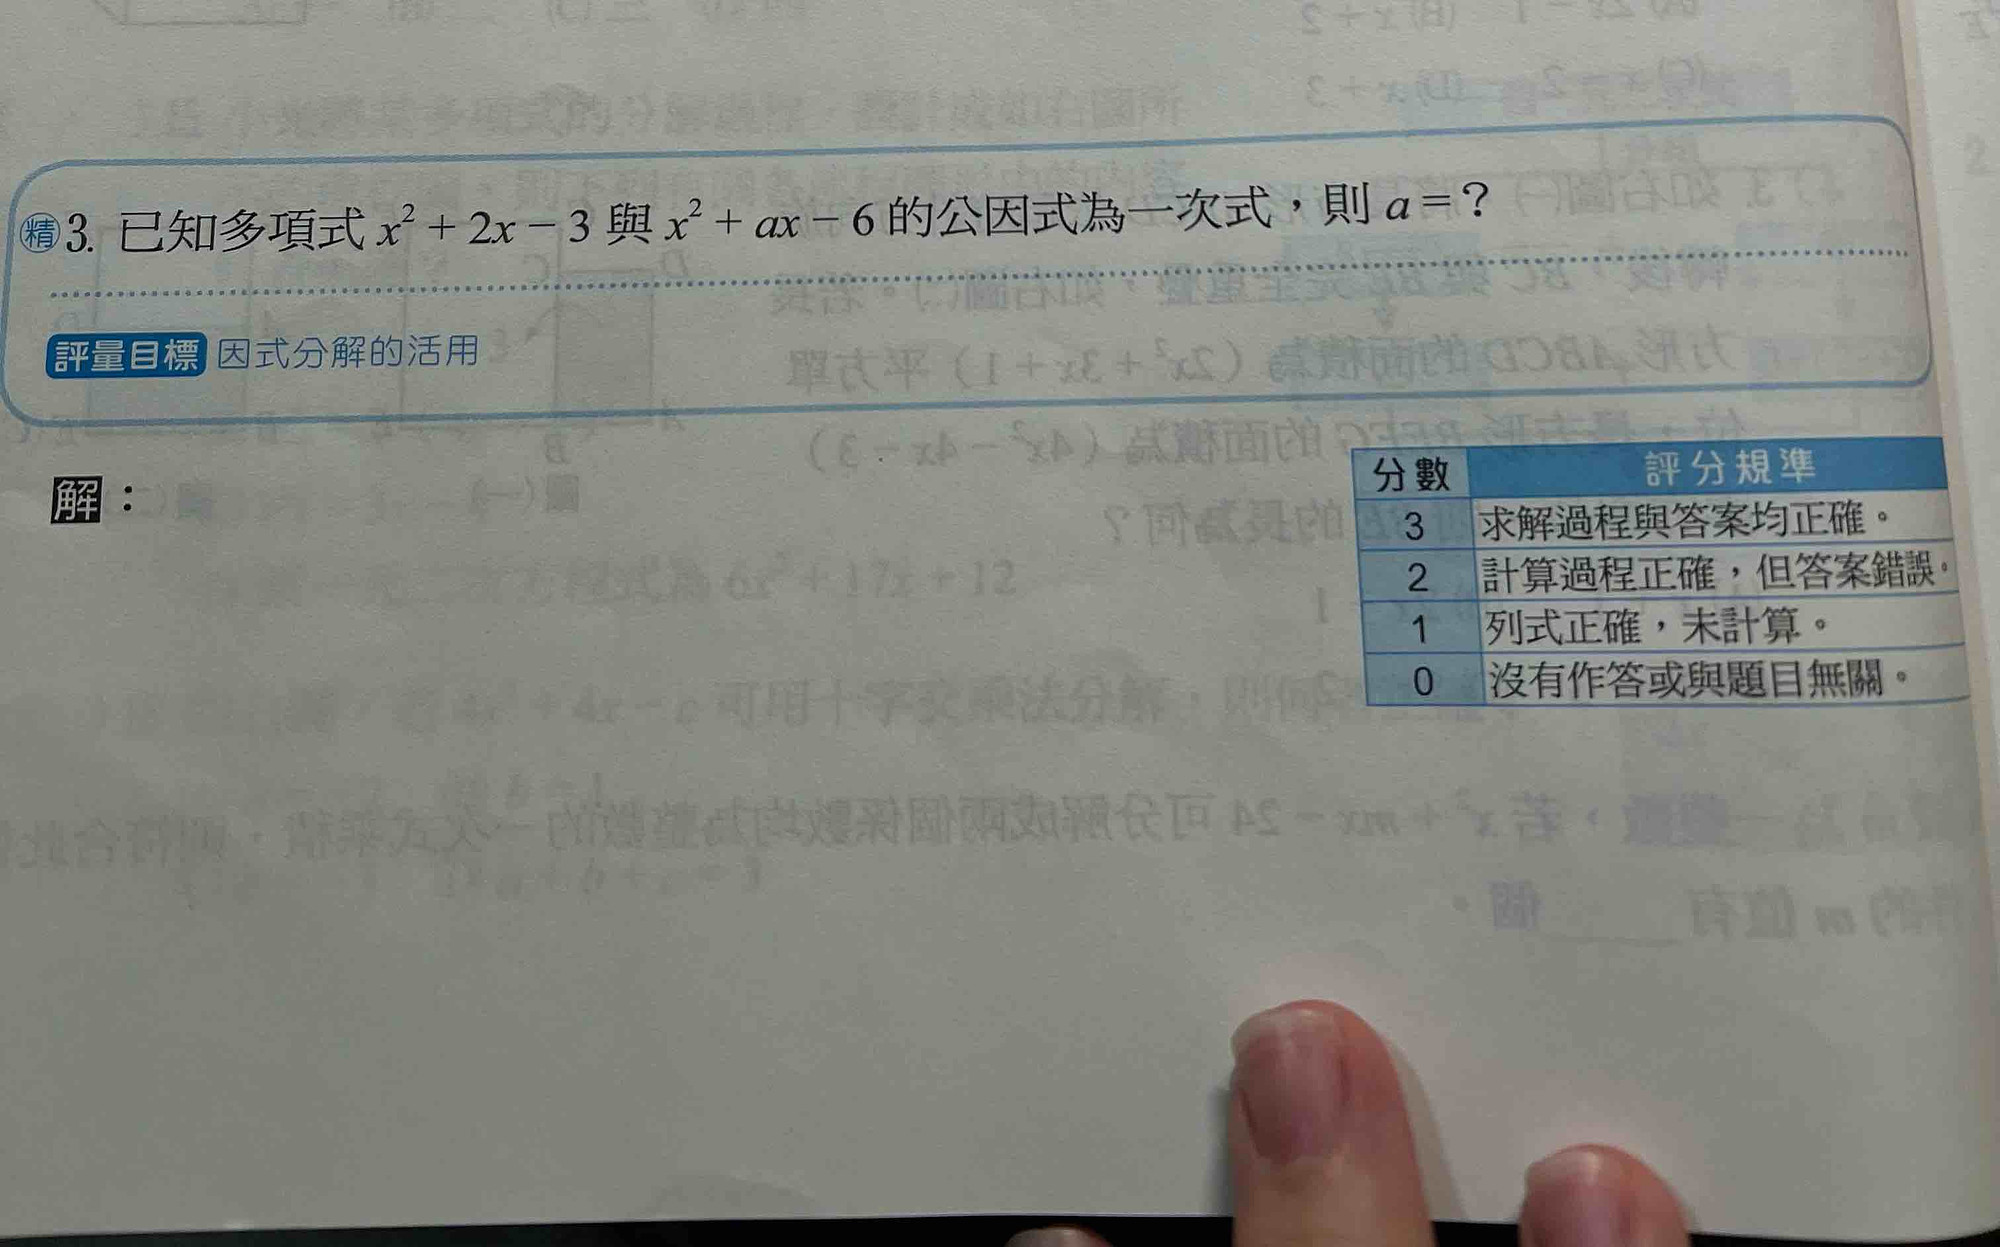 精 3. 已知多項式 x² + 2x − 3 與 x² + ax − 6 的公因式為一次式，則 a = ？
評量目標 因式分解的活用
解：
分數 評分規準
3 求解過程與答案均正確。
2 計算過程正確，但答案錯誤。
1 列式正確，未計算。
0 沒有作答或與題目無關。